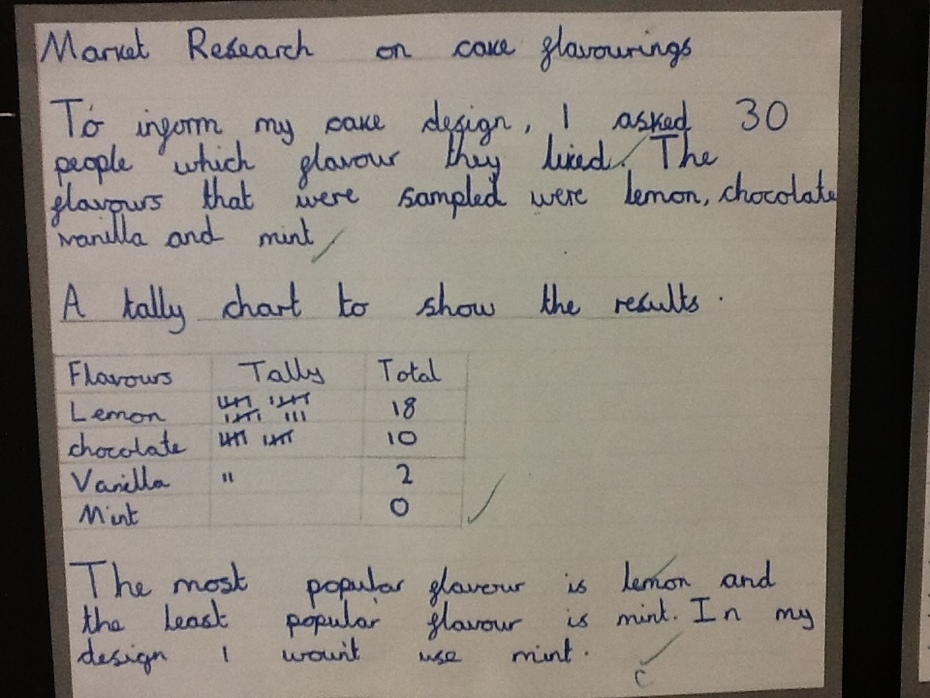 Market Research on cake flavourings
To inform my cake design, I asked 30
people which flavour they liked. The
flavours that were sampled were lemon, chocolate
vanilla and mint
A tally chart to show the results.
Flavours Tally Total
Lemon 18
chocolate 10
Vanilla 2
Mint 0
The most popular flavour is lemon and
the least popular flavour is mint. In my
design I woun't use mint.
C